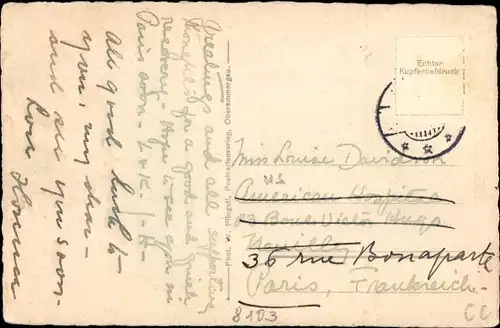 Greetings and all supporting
thoughts for a good and quick
recovery - Hope to see you in
Paris soon -
All good luck to
you, my dear -
and see you soon -
Phot. W. Pfingstl, Postkartenverlag, Oberammergau.
Echter
Kupfertiefdruck
Miss Louise Davidson
American Hospital
63 Boul. Victor Hugo
Neuilly
36 rue Bonaparte
Paris, Frankreich -
8103
CC